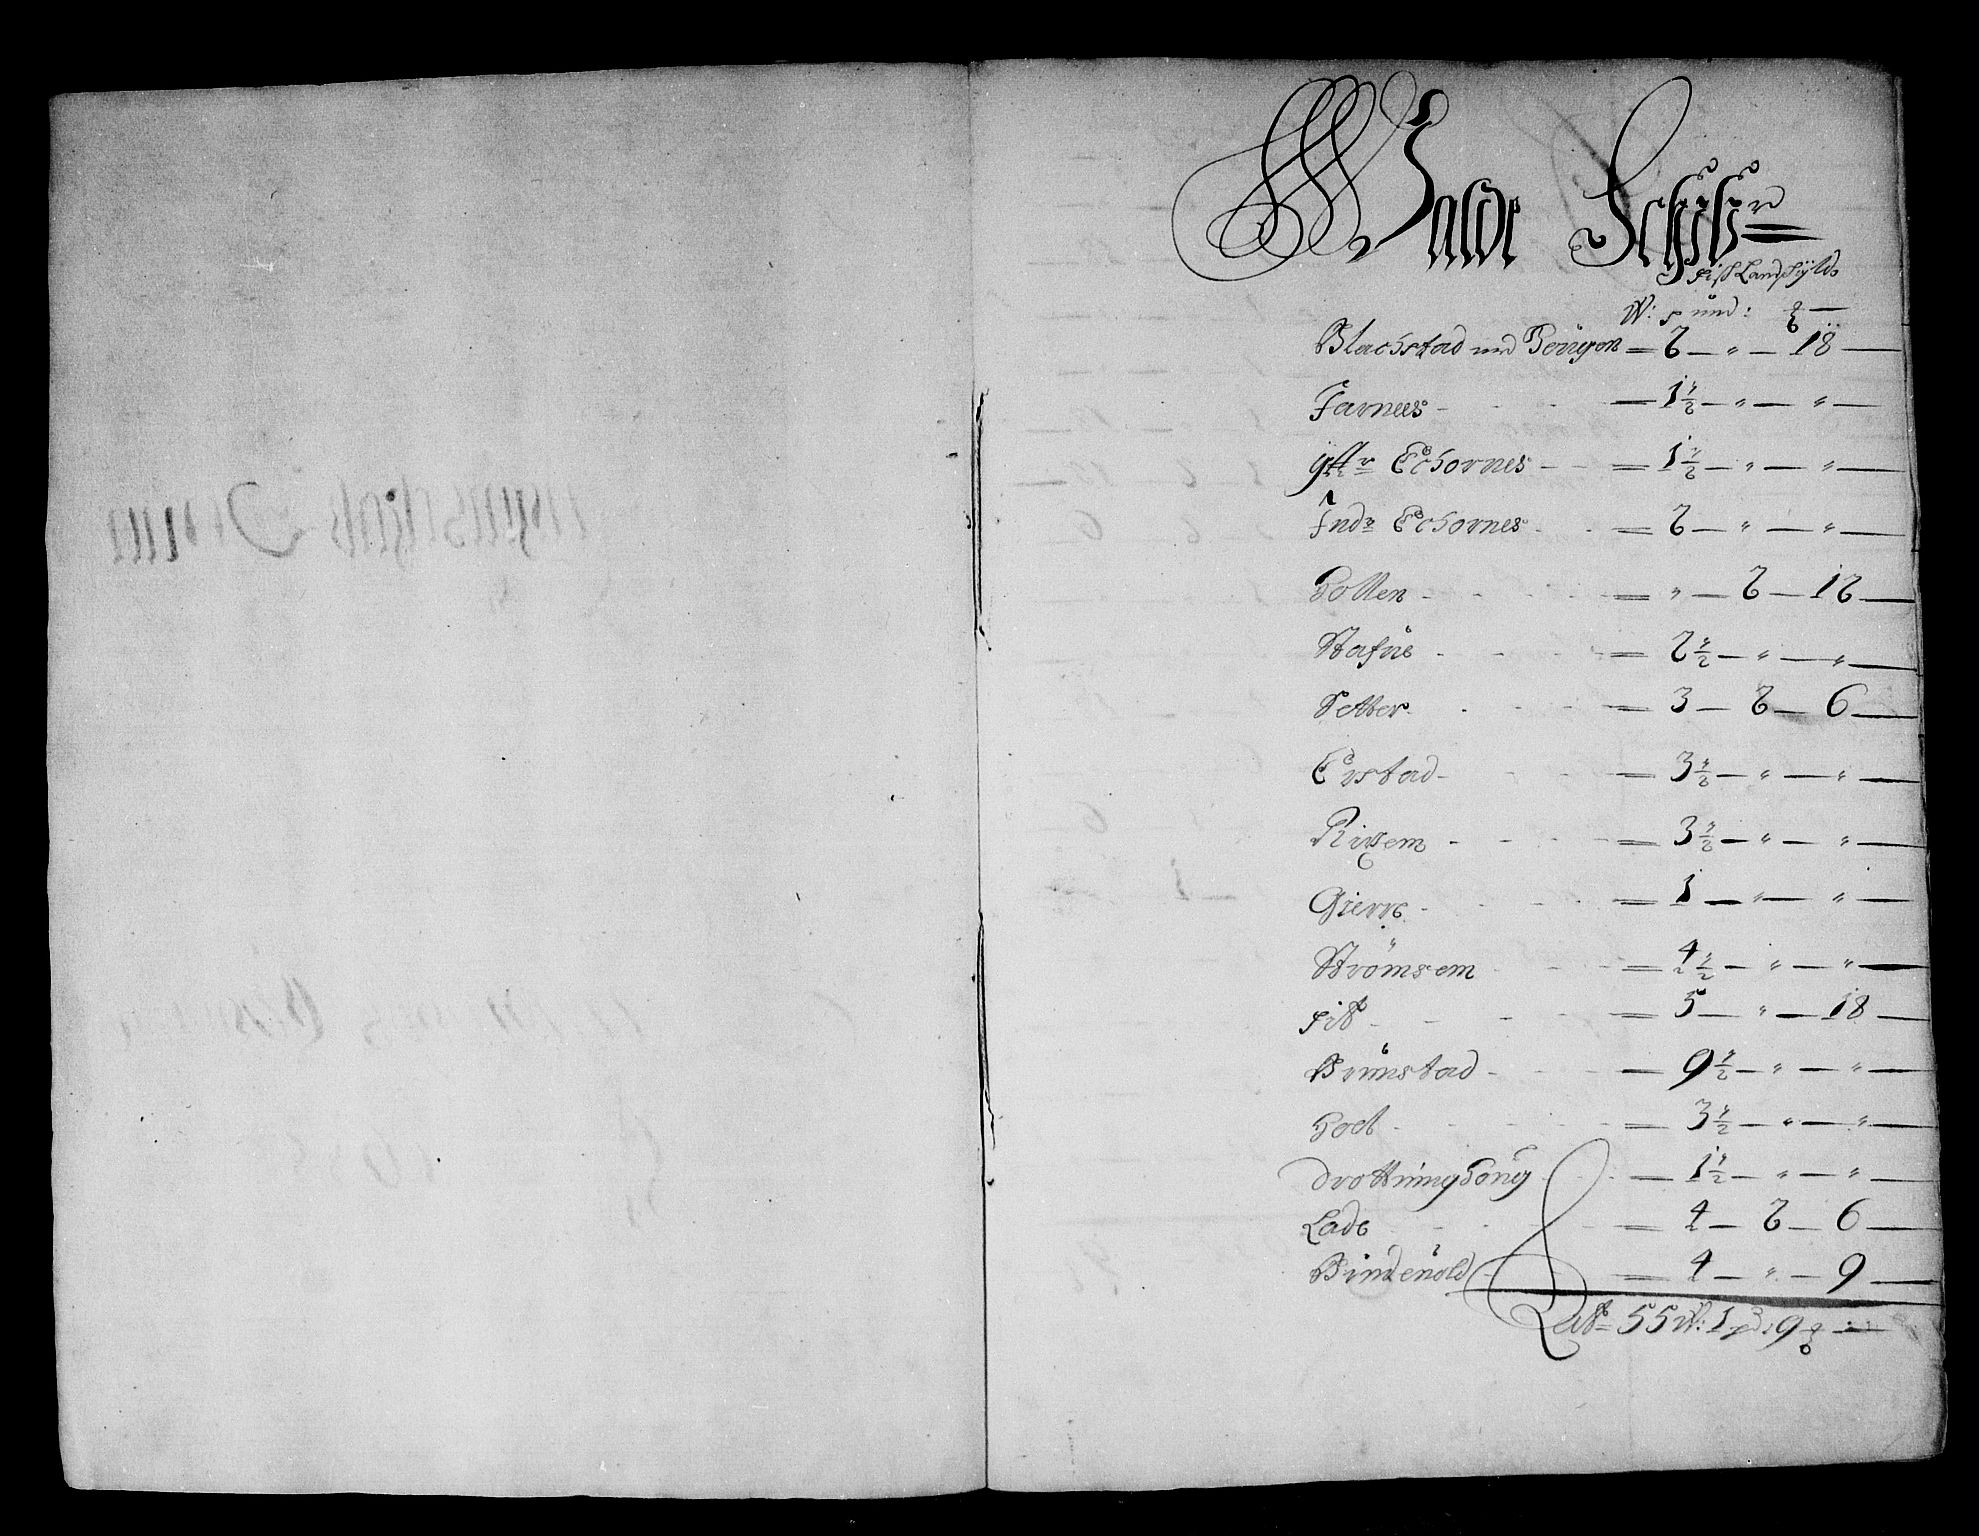 Walde Schibr
fisk Landskyld
W: pund: ℔
Blachstad und Hougen = 2 — " — 18 —
Farnees — 1½ — " — " —
yttr Echornes = 1½ — " — " —
Indr Echornes = 2 — " — " —
Hollen = " — 2 — 12 —
Stafne = 2½ — " — " —
Setter = 3 — 2 — 6 —
Erstad = 3½ — " — " —
Rissem = 3½ — " — " —
Gierre = 1 — " — " —
Strömsem = 4½ — " — " —
fitt = 5 — " — 18 —
Brunstad — 9½ — " — " —
Hoell = 3½ — " — " —
Drottninghong = 1½ — " — " —
Lade = 4 — 2 — 6 —
Bindenold = 4 — " — 9 —
Latt = 55 W: 1 pd: 9 ℔